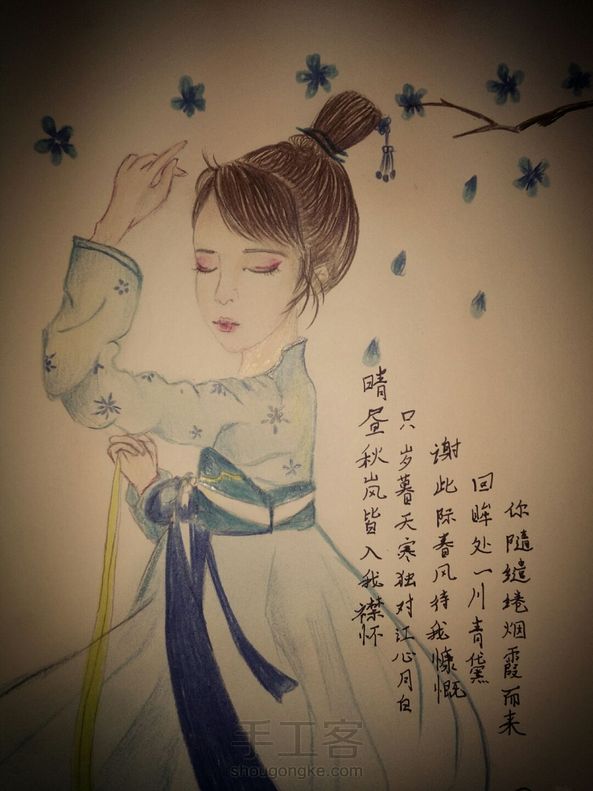 你随缱绻烟霞而来
回眸处一川青黛
谢此际春风待我慷慨
只岁暮天寒独对江心月白
晴昼秋岚皆入我襟怀
手工客
shougongke.com